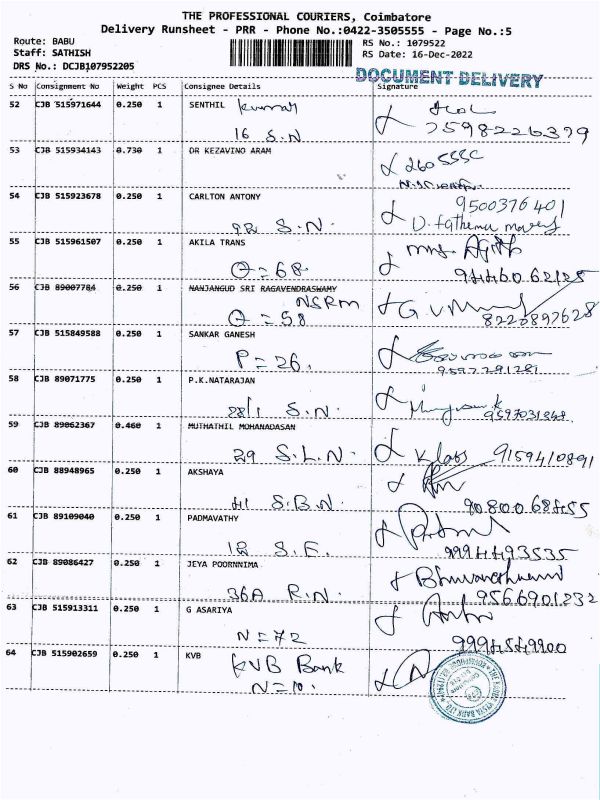 THE PROFESSIONAL COURIERS, Coimbatore
Delivery Runsheet - PRR - Phone No.:0422-3505555 - Page No.:5
Route: BABU
RS No.: 1079522
Staff: SATHISH
RS Date: 16-Dec-2022
DRS No.: DCJB107952205
DOCUMENT DELIVERY
S No Consignment No Weight PCS Consignee Details Signature
52 CJB 515971644 0.250 1 SENTHIL Kumar
16 S.N 7598226379
53 CJB 515934143 0.730 1 DR KEZAVINO ARAM
54 CJB 515923678 0.250 1 CARLTON ANTONY 9500376401
92 S.N. D. fathema
55 CJB 515961507 0.250 1 AKILA TRANS
Q = 68
56 CJB 89007784 0.250 1 NANJANGUD SRI RAGAVENDRASWAMY
NSRM
Q = 58 8220897628
57 CJB 515849588 0.250 1 SANKAR GANESH
P = 26.
58 CJB 89071775 0.250 1 P.K.NATARAJAN
S.N.
59 CJB 89062367 0.460 1 MUTHATHIL MOHANADASAN
29 S.L.N. 9159410891
60 CJB 88948965 0.250 1 AKSHAYA
41 S.B.N. 9080068455
61 CJB 89109040 0.250 1 PADMAVATHY
12 S.F. 9994493535
62 CJB 89086427 0.250 1 JEYA POORNNIMA
36A R.N. 9566901232
63 CJB 515913311 0.250 1 G ASARIYA
N = 72 9994549900
64 CJB 515902659 0.250 1 KVB KVB Bank
N = 10.